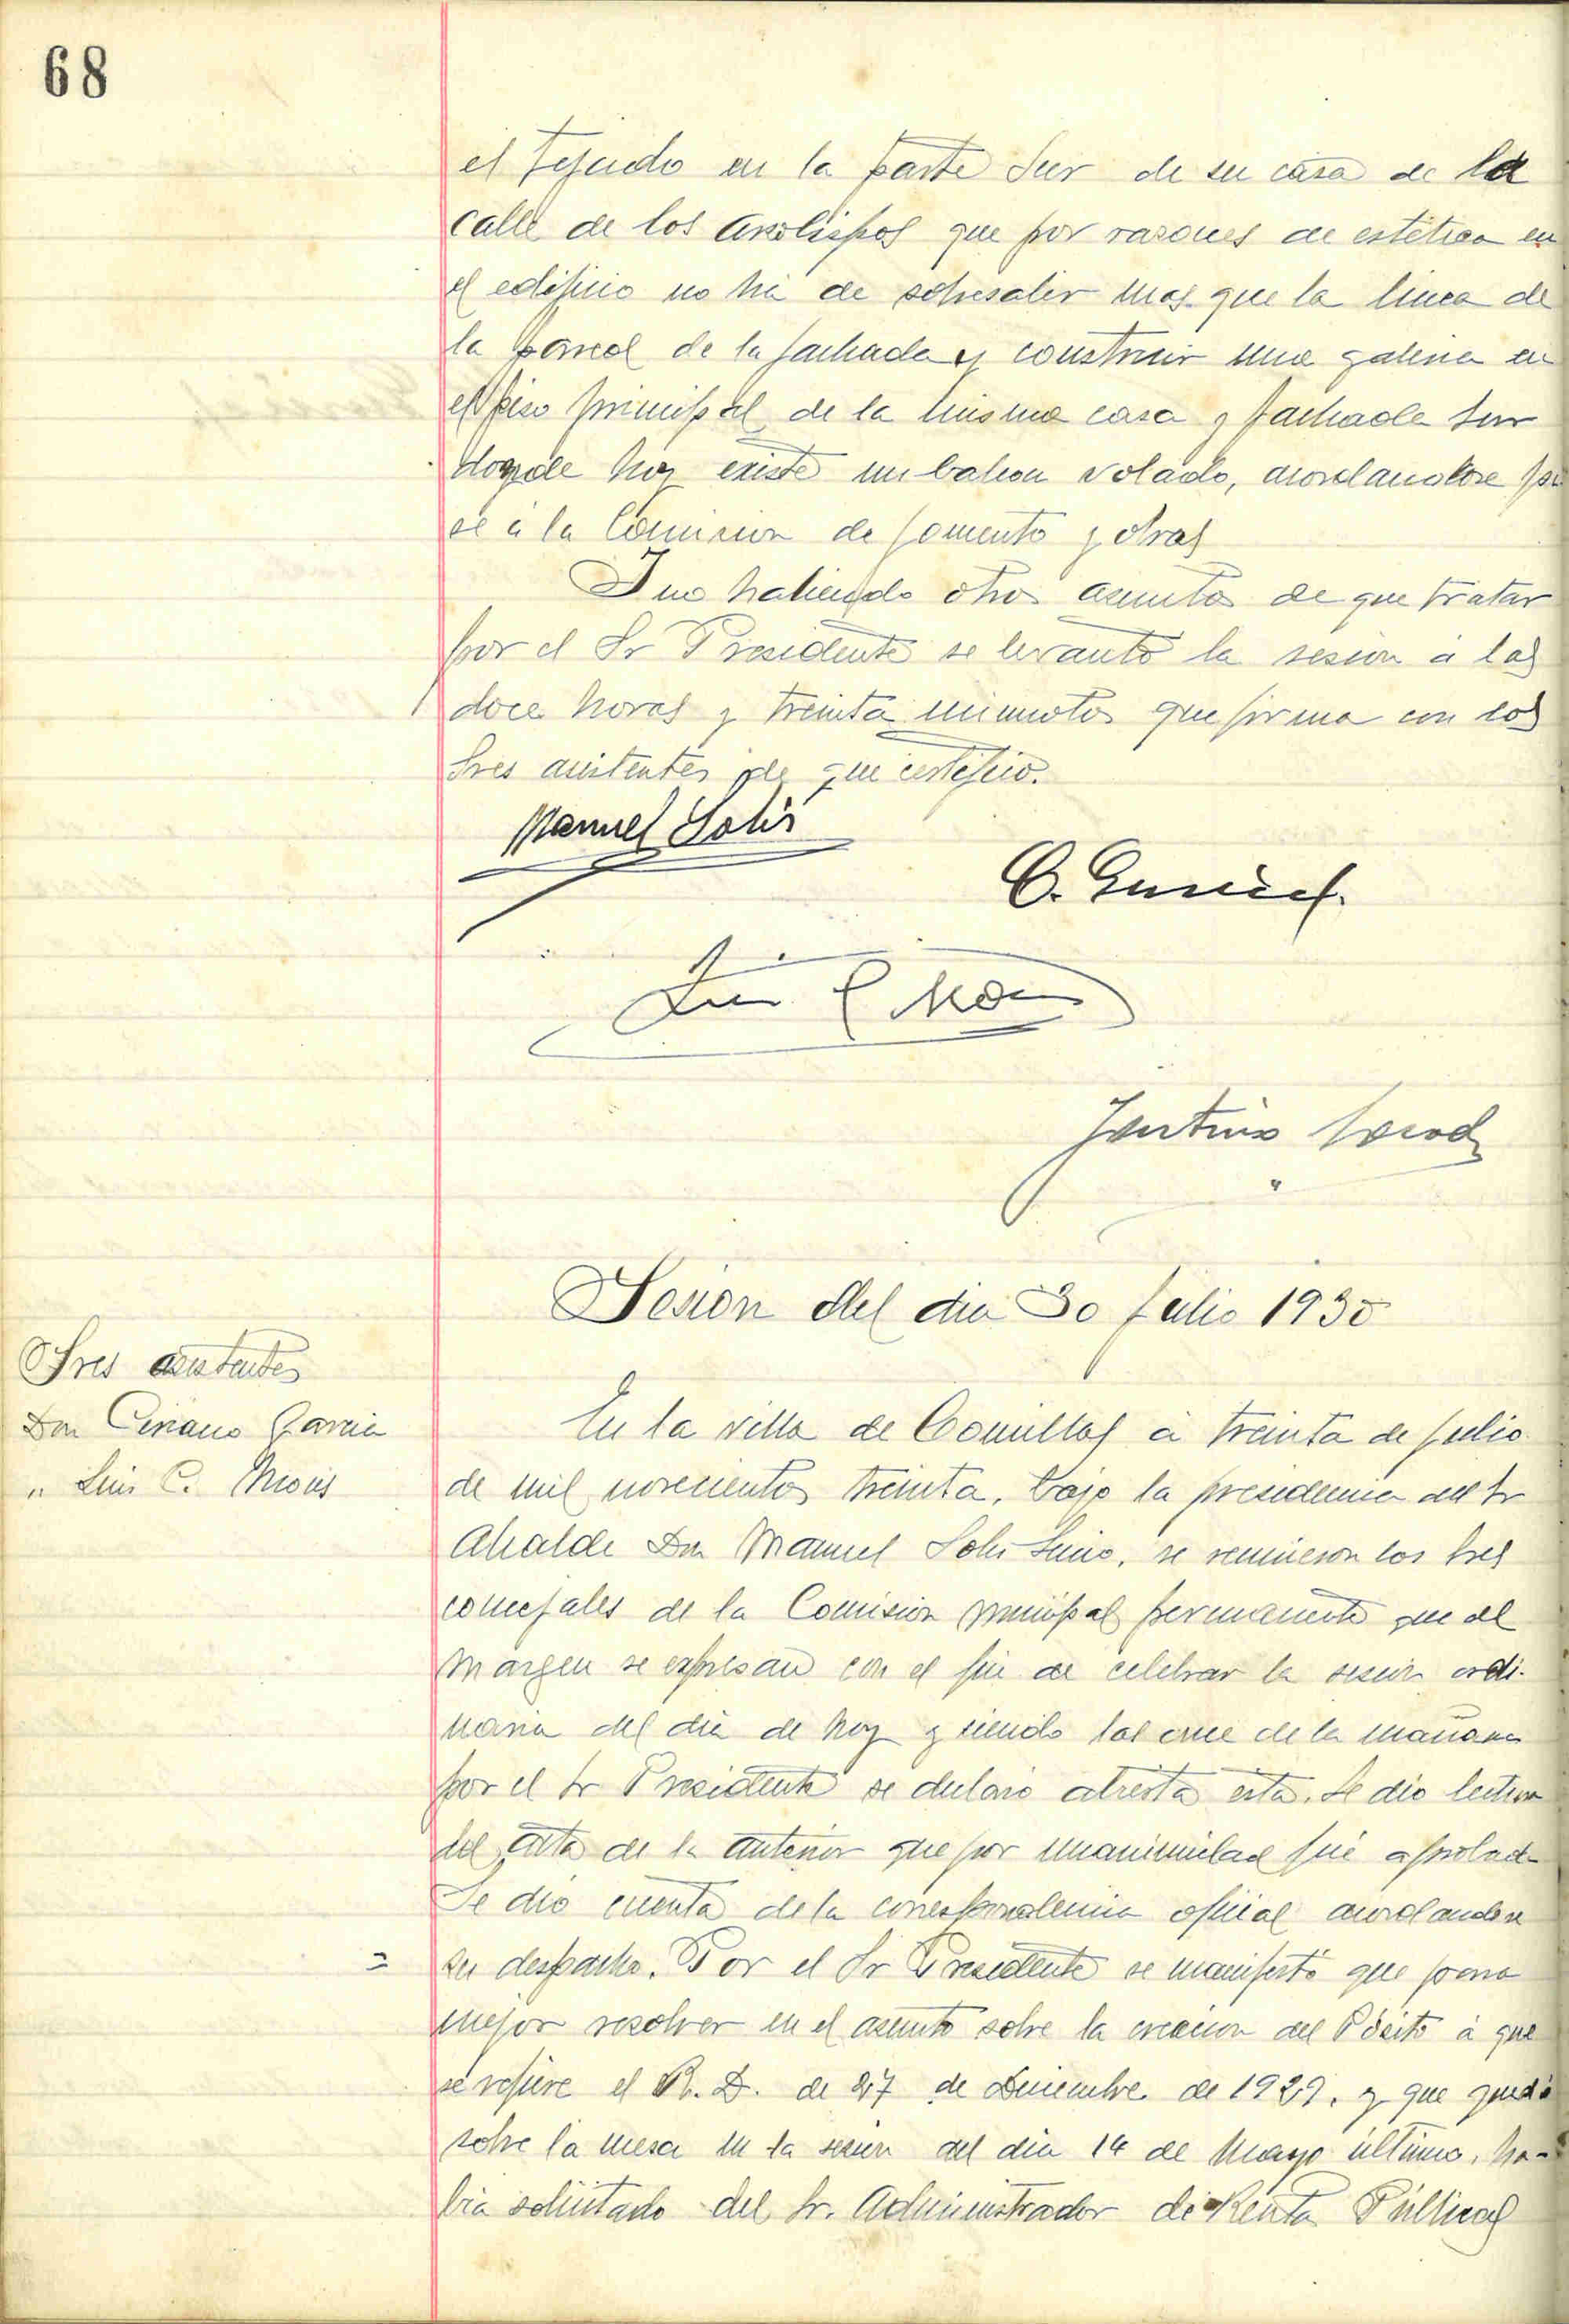 68
el tejado en la parte Sur de su casa de la
calle de los Arzobispos que por razones de estética en
el edificio no ha de sobresalir mas que la linea de
la pared de la fachada y construir una galeria en
el piso principal de la misma casa y fachada Sur
donde hoy existe un balcon volado, acordandose pa
se a la Comision de fomento y obras
Y no habiendo otros asuntos de que tratar
por el Sr Presidente se levantó la sesion a las
doce horas y treinta minutos que firma con los
Sres asistentes de que certifico.
Manuel Solis
C. Garcia
Luis C Moris
Sesion del dia 30 Julio 1930
Sres asistentes
Don Ceriaco Garcia
" Luis C. Moris
En la villa de Comillas á treinta de Julio
de mil novecientos treinta, bajo la presidencia del Sr
Alcalde Don Manuel Solis, se reunieron los Sres
concejales de la Comision municipal permanente que al
margen se expresan con el fin de celebrar la sesion ordi-
naria del dia de hoy y siendo las once de la mañana
por el Sr Presidente se declaró abierta esta. Se dio lectura
del acta de la anterior que por unanimidad fué aprobada
Se dió cuenta de la correspondencia oficial acordandose
=
su despacho. Por el Sr Presidente se manifestó que para
mejor resolver en el asunto sobre la creacion del Pósito á que
se refiere el R. D. de 27 de Diciembre de 1929, y que quedó
sobre la mesa en la sesion del dia 14 de Mayo último, ha-
bia solicitado del Sr. Administrador de Rentas Públicas